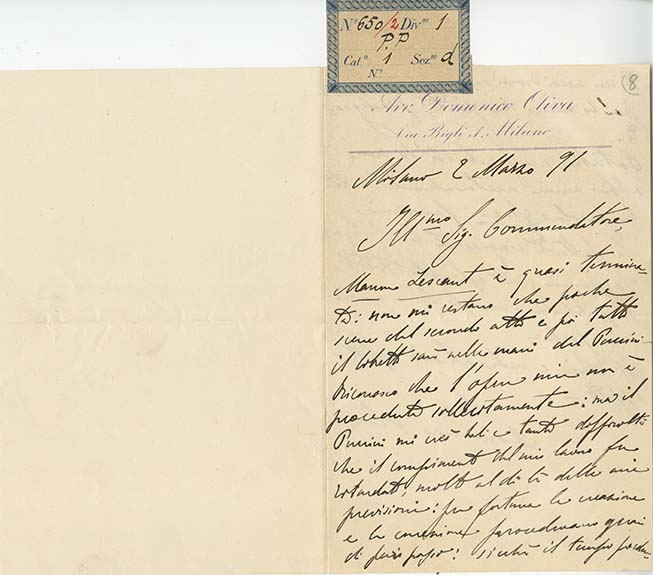 Nº 650/2 Divne 1
P.P
Cat.a 1 Sez.ne d
Nº
8
Avv. Domenico Oliva
Via Bigli 1. Milano
Milano 2 Marzo 91
Ill.mo Sig. Commendatore,
Manon Lescaut è quasi termina-
ta: non mi restano che poche
scene del secondo atto e poi tutto
il libretto sarà nelle mani del Puccini.
Riconosco che l'opera mia non è
proceduta sollecitamente: ma il
Puccini mi creò tali e tante difficoltà
che il compimento del mio lavoro fu
ritardato, molto al di là delle mie
previsioni: per fortuna la creazione
e la correzione procedevano quasi
di pari passo: sicchè il tempo perdu-